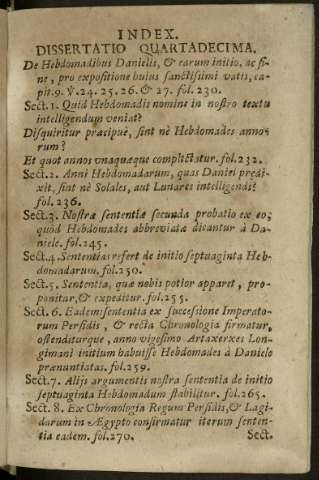 INDEX.
DISSERTATIO QUARTADECIMA.
De Hebdomadibus Danielis, & earum initio, ac fi-
ne, pro expositione huius sanctissimi vatis, ca-
pit. 9. ℣. 24. 25. 26. & 27. fol. 230.
Sect. 1. Quid Hebdomadis nomine in nostro textu
intelligendum veniat?
Disquiritur præcipuè, sint nè Hebdomades anno-
rum?
Et quot annos unaquæque complectatur. fol. 232.
Sect. 2. Anni Hebdomadarum, quas Daniel prædi-
xit, sint nè Solales, aut Lunares intelligendi?
fol. 236.
Sect. 3. Nostræ sententiæ secunda probatio ex eo;
quòd Hebdomades abbreviatæ dicantur à Da-
niele. fol. 245.
Sect. 4. Sententias refert de initio septuaginta Heb-
domadarum. fol. 250.
Sect. 5. Sententia, quæ nobis potior apparet, pro-
ponitur, & expeditur. fol. 255.
Sect. 6. Eadem sententia ex successione Imperato-
rum Persidis, & recta Chronologia firmatur,
ostenditurque, anno vigesimo Artaxerxes Lon-
gimani initium habuisse Hebdomades à Daniele
prænuntiatas. fol. 259.
Sect. 7. Alijs argumentis nostra sententia de initio
septuaginta Hebdomadum stabilitur. fol. 265.
Sect. 8. Ex Chronologia Regum Persidis, & Lagi-
darum in Ægypto confirmatur iterum senten-
tia eadem. fol. 270.
Sect.